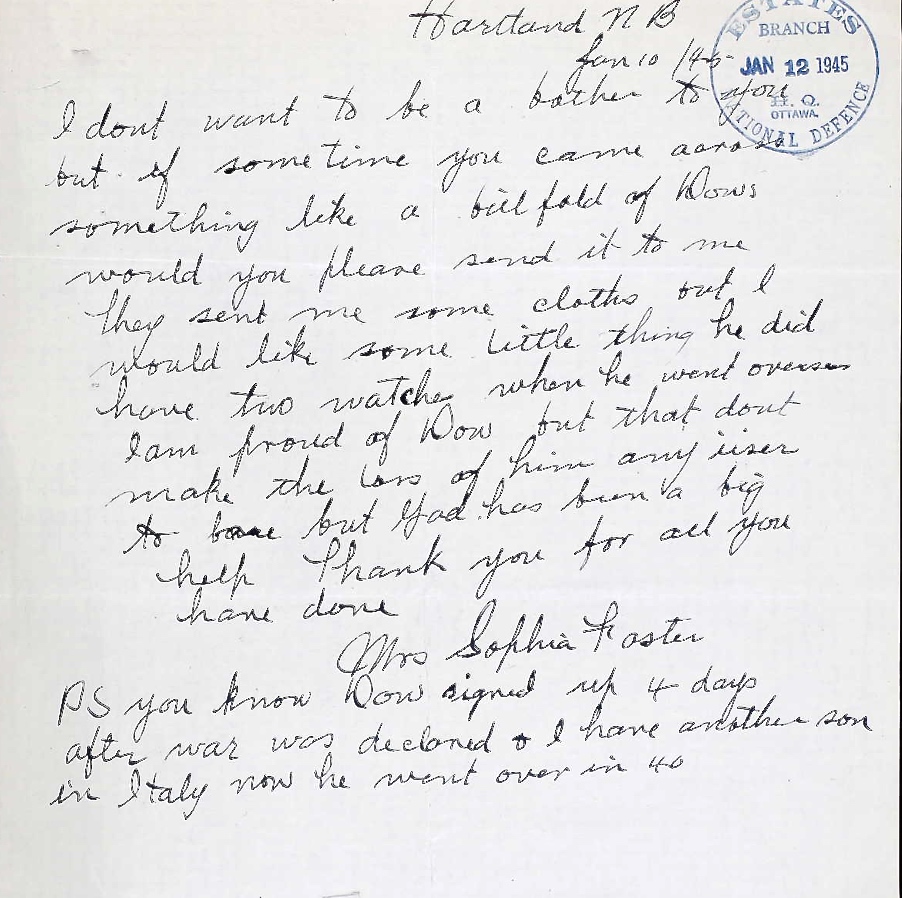 Hartland N B
Jan 10 /45
ESTATES
BRANCH
JAN 12 1945
H. Q.
OTTAWA.
NATIONAL DEFENCE
I dont want to be a bother to you
but if sometime you came across
something like a bill fold of Dows
would you please send it to me
they sent me some cloths but I
would like some little thing he did
have two watches when he went overseas
I am proud of Dow but that dont
make the loss of him any
to bare but God has been a big
help Thank you for all you
have done
Mrs Sophia Foster
PS you know Dow signed up 4 days
after war was declared & I have another son
in Italy now he went over in 40